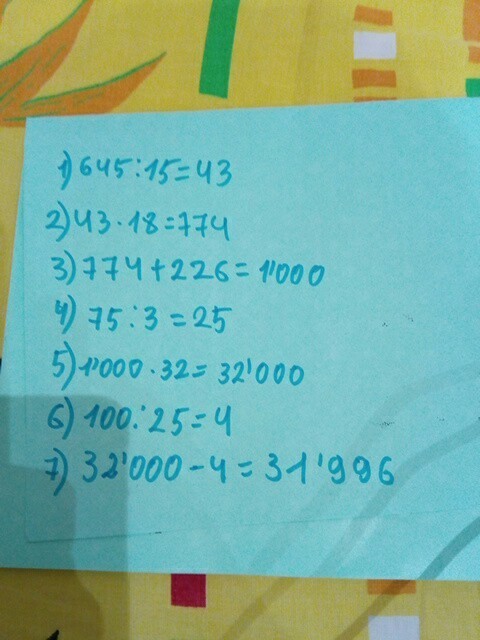 1) 645:15=43
2) 43·18=774
3) 774+226=1'000
4) 75:3=25
5) 1'000·32=32'000
6) 100:25=4
7) 32'000-4=31'996